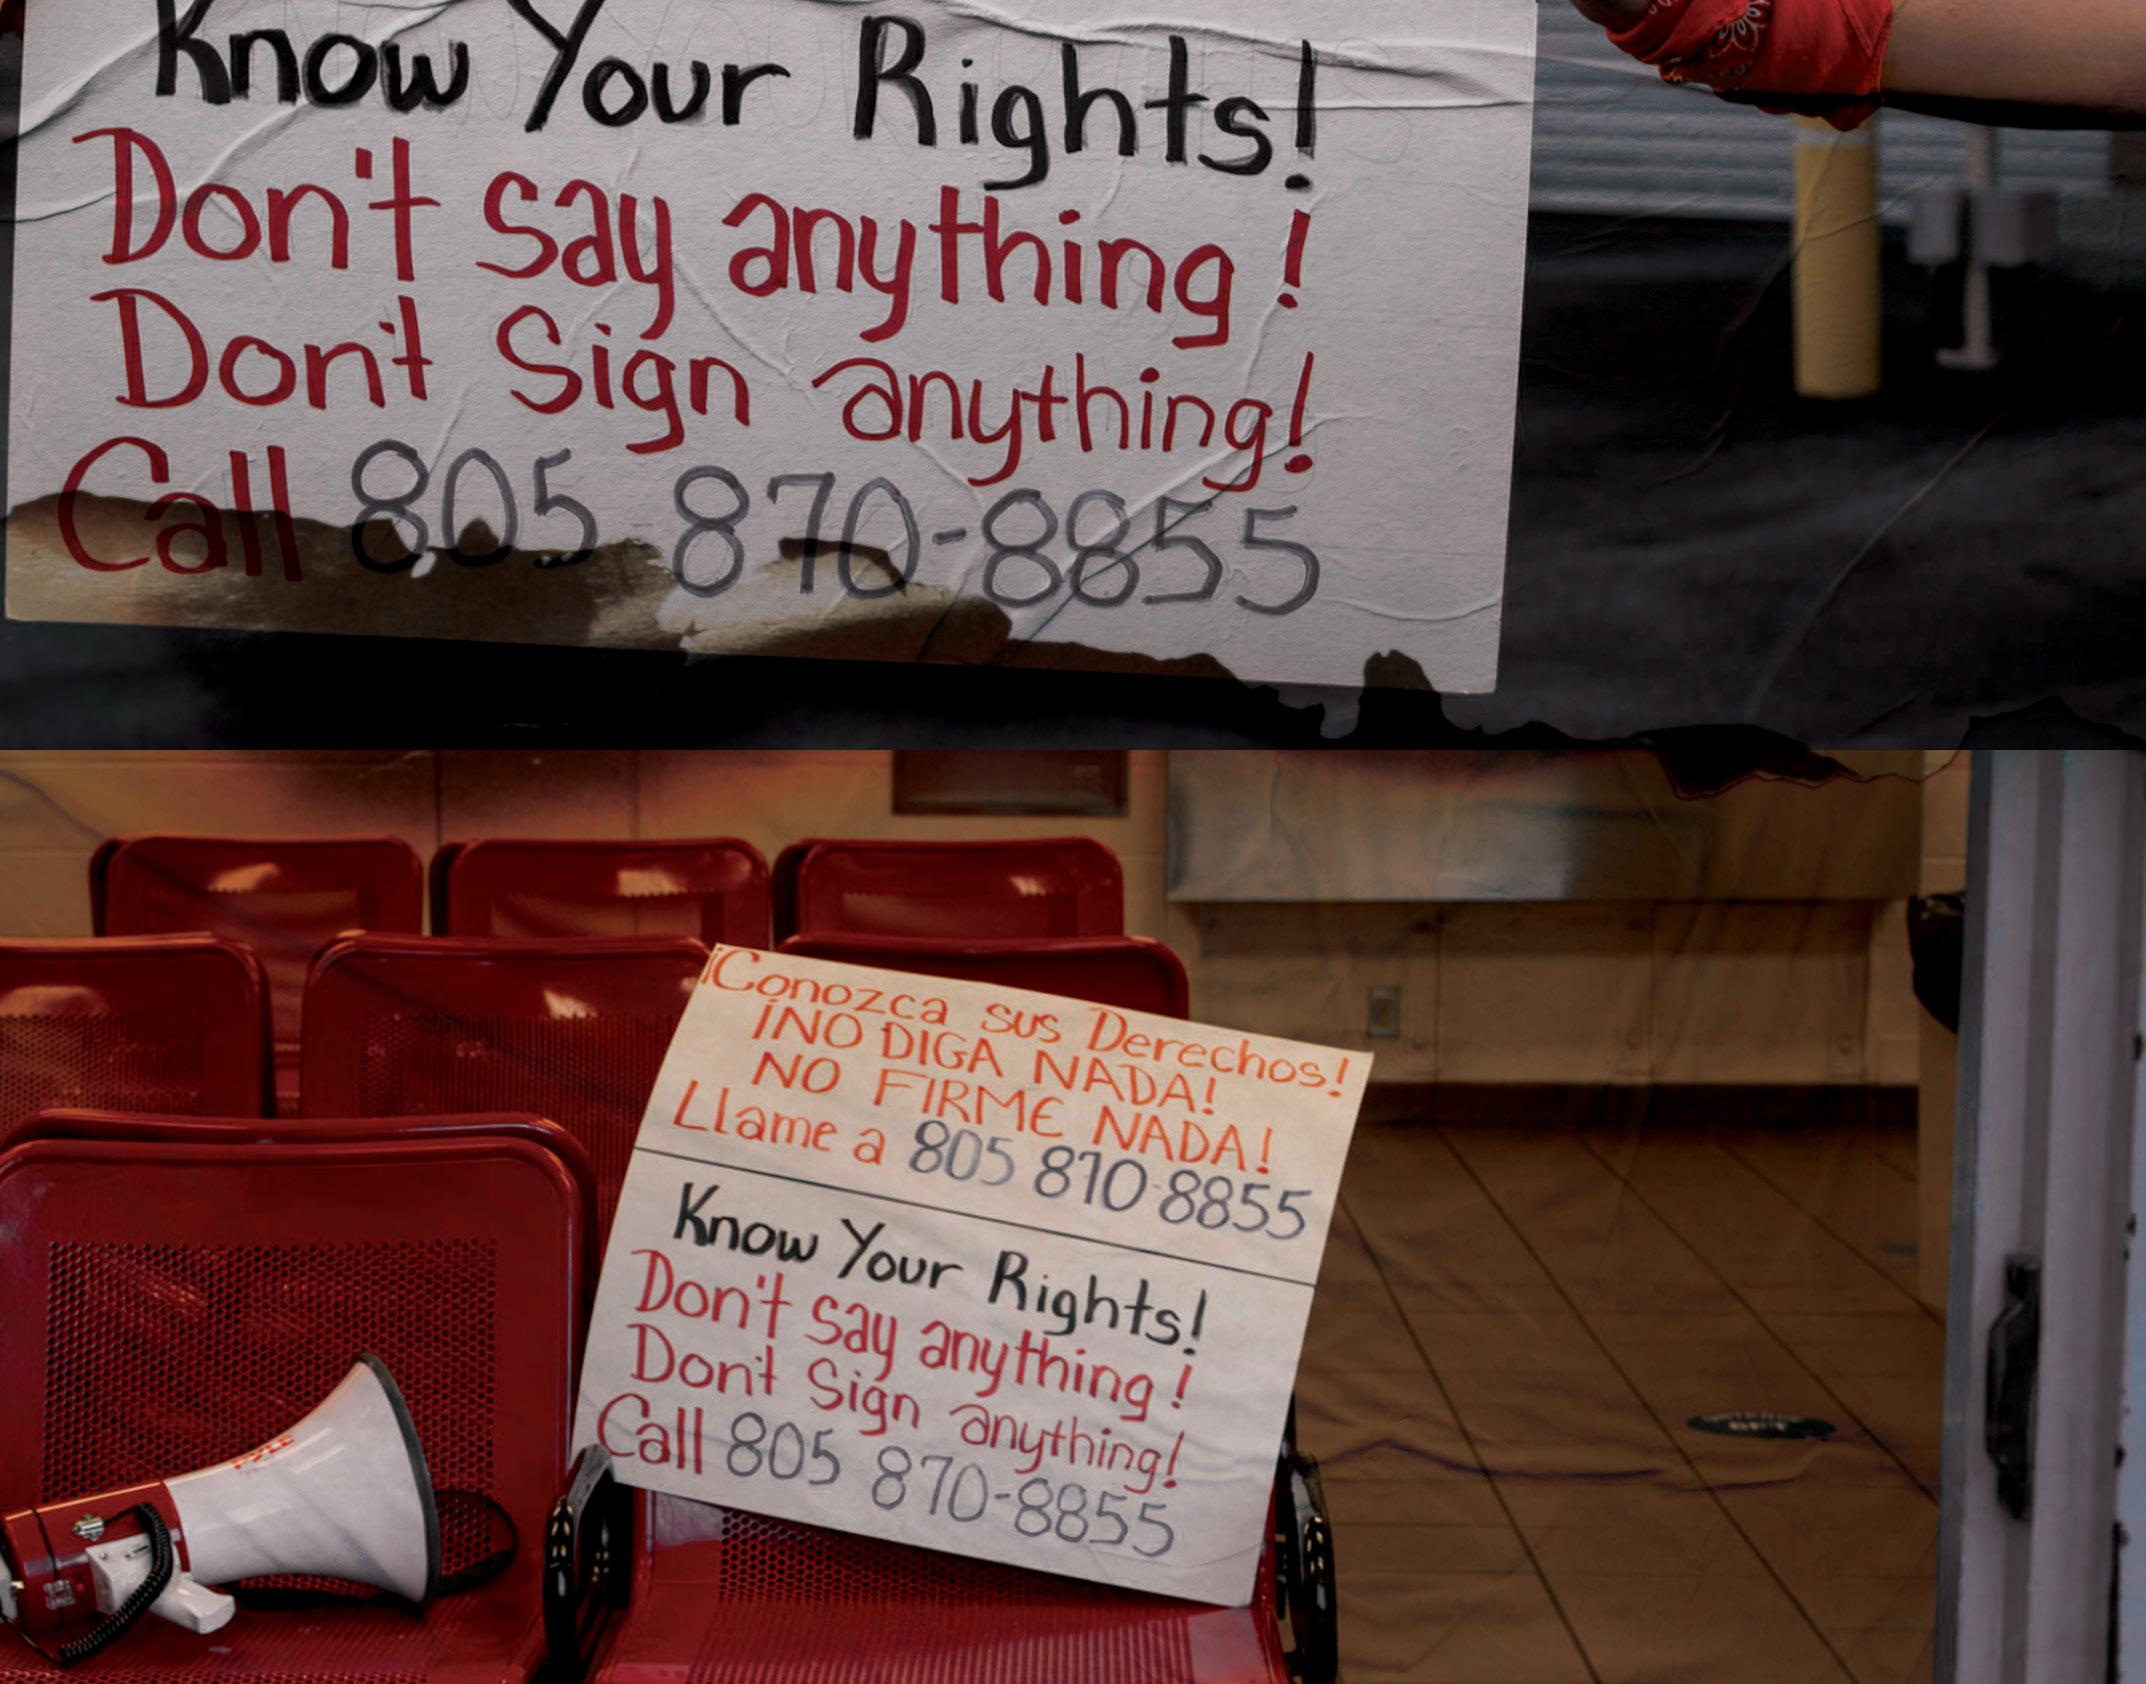 Know Your Rights!
Don't say anything!
Don't Sign anything!
Call 805 870-8855
¡Conozca sus Derechos!
¡NO DIGA NADA!
NO FIRME NADA!
Llame a 805 870-8855
Know Your Rights!
Don't say anything!
Don't Sign anything!
Call 805 870-8855